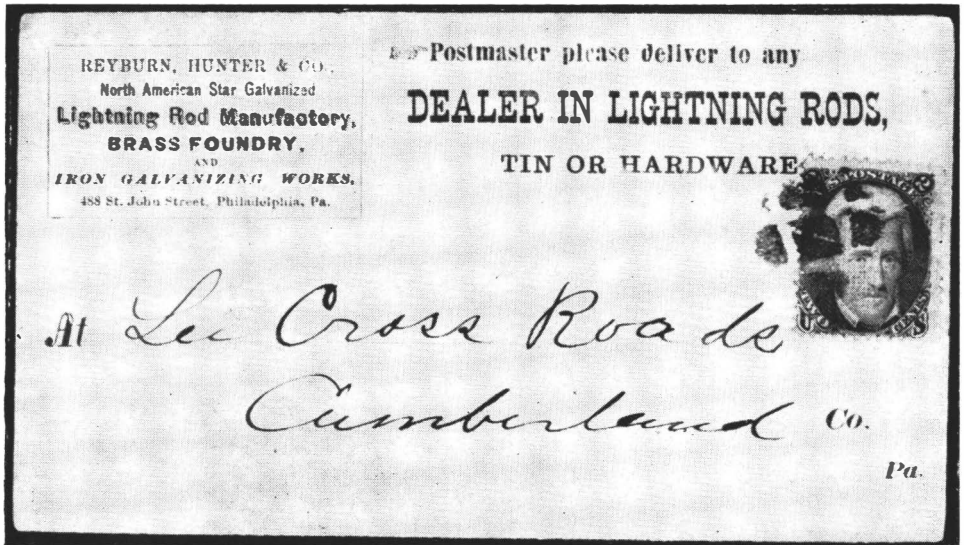 REYBURN, HUNTER & CO.
North American Star Galvanized
Lightning Rod Manufactory,
BRASS FOUNDRY,
AND
IRON GALVANIZING WORKS.
488 St. John Street, Philadelphia, Pa.
☞Postmaster please deliver to any
DEALER IN LIGHTNING RODS,
TIN OR HARDWARE
At Lee Cross Roads
Cumberland Co.
Pa.